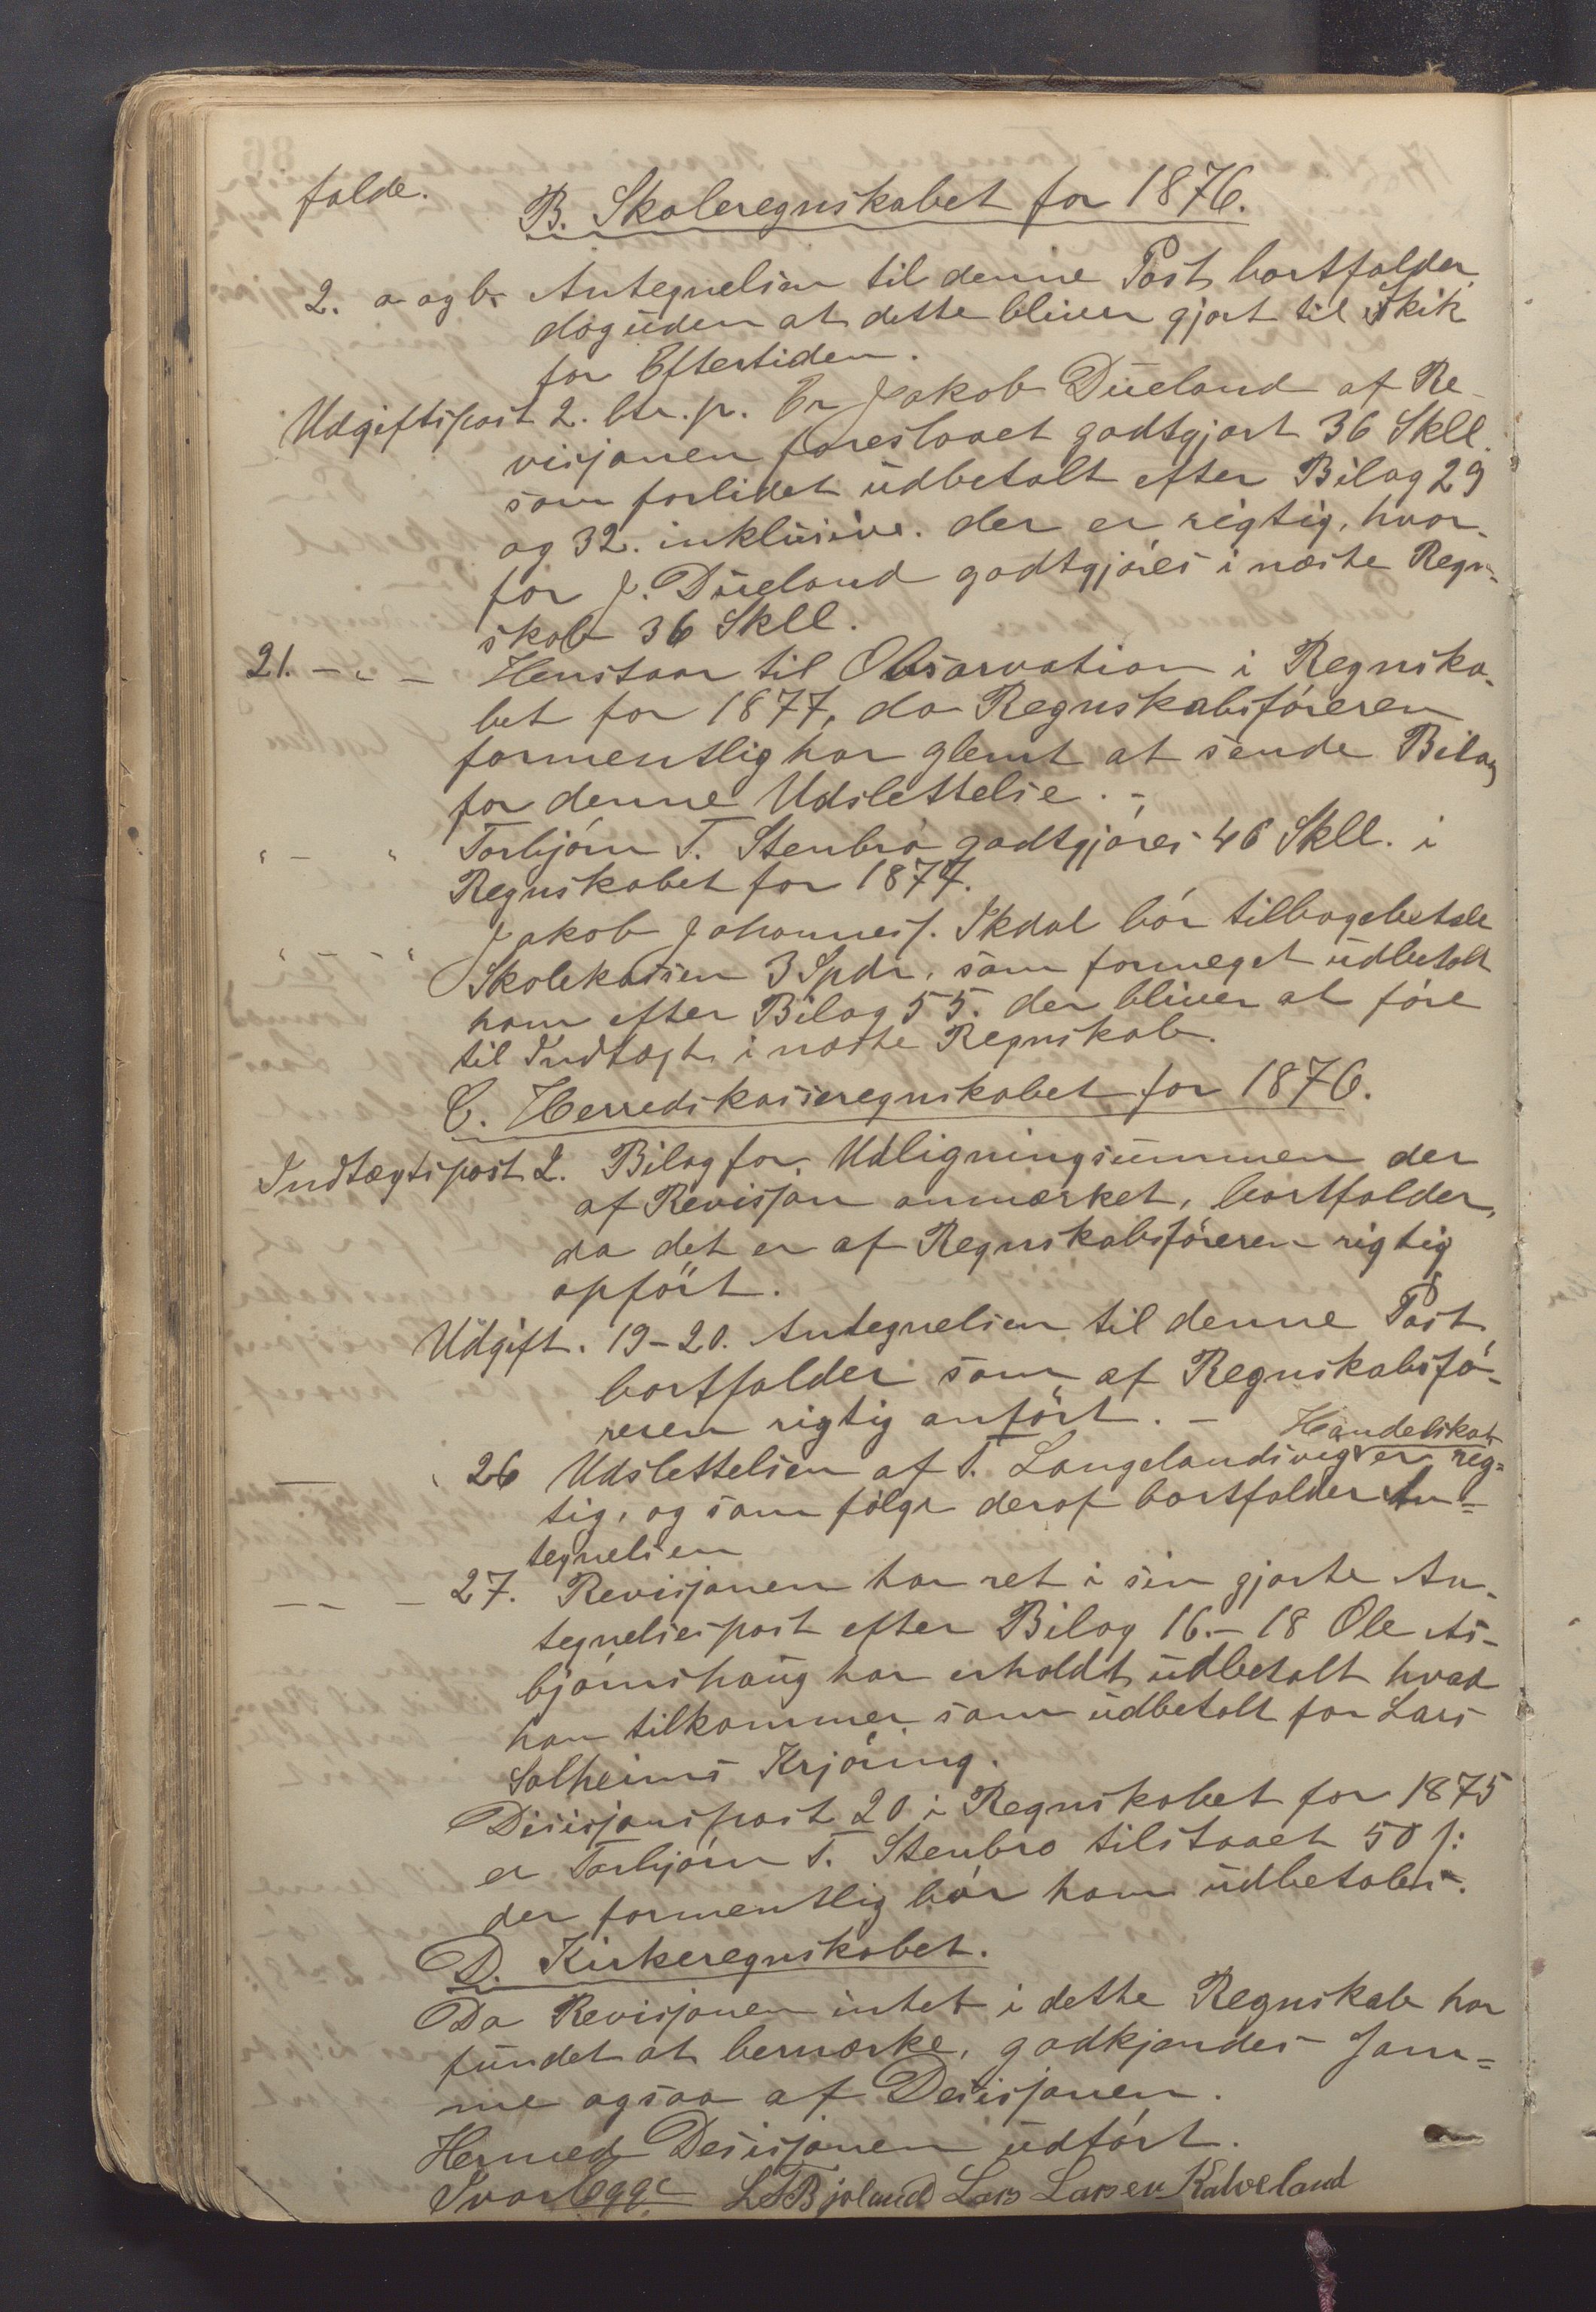 falde.
B. Skoleregnskabet for 1876.
2. a og b. Antegnelsen til denne Post bortfalder
dog uden at dette bliver gjort til Skik
for Eftertiden.
Udgiftspost 2. Er Jakob Dueland af Re-
visjonen foreslaaet godtgjort 36 Skll.
som forlidet udbetalt efter Bilag 29
og 32. inklusive. der er rigtig, hvor-
for J. Dueland godtgjøres i næste Regn-
skab 36 Skll.
21. - " - Henstaar til Observation i Regnska-
bet for 1877, da Regnskabsføreren
formentlig har glemt at sende Bilag
for denne Udslettelse. -
" - " Torbjørn T. Stenbrø godtgjøres 46 Skll. i
Regnskabet for 1877.
" - - " Jakob Johannes. Ikdal bør tilbagebetale
Skolekassen 3 Spdr. som formeget udbetalt
ham efter Bilag 55. der bliver at føre
til Indtægt i næste Regnskab.
C. Herredskasseregnskabet for 1876.
Indtægtspost 2. Bilag for Udligningsummen der
af Revisjon anmærket, bortfalder,
da det er af Regnskabsføreren rigtig
opført.
Udgift. 19-20. Antegnelsen til denne Post
bortfalder som af Regnskabsfø-
reren rigtig anført. -
Handelskat
— " 26 Udslettelsen af T. Langelandsvig er rig=
tig, og som følge deraf bortfalder An=
tegnelsen
-- - 27. Revisjonen har ret i sin gjorte An-
tegnelsespost efter Bilag 16.-18 Ole As-
bjørnshaug har erholdt udbetalt hvad
han tilkommer som udbetalt for Lars
Solheims Kjøring.
Disisjonspost 20 i Regnskabet for 1875
er Torbjørn T. Stenbro tilstaaet 50 s:
der formentlig bør ham udbetales.
D. Kirkeregnskabet.
Da Revisjonen intet i dette Regnskab har
fundet at bemærke, godkjendes Sam=
me ogsaa af Desisjonen.
Hermed Desisjonen udført.
Ivar Egge L T Bjeland Lars Larsen Kalveland